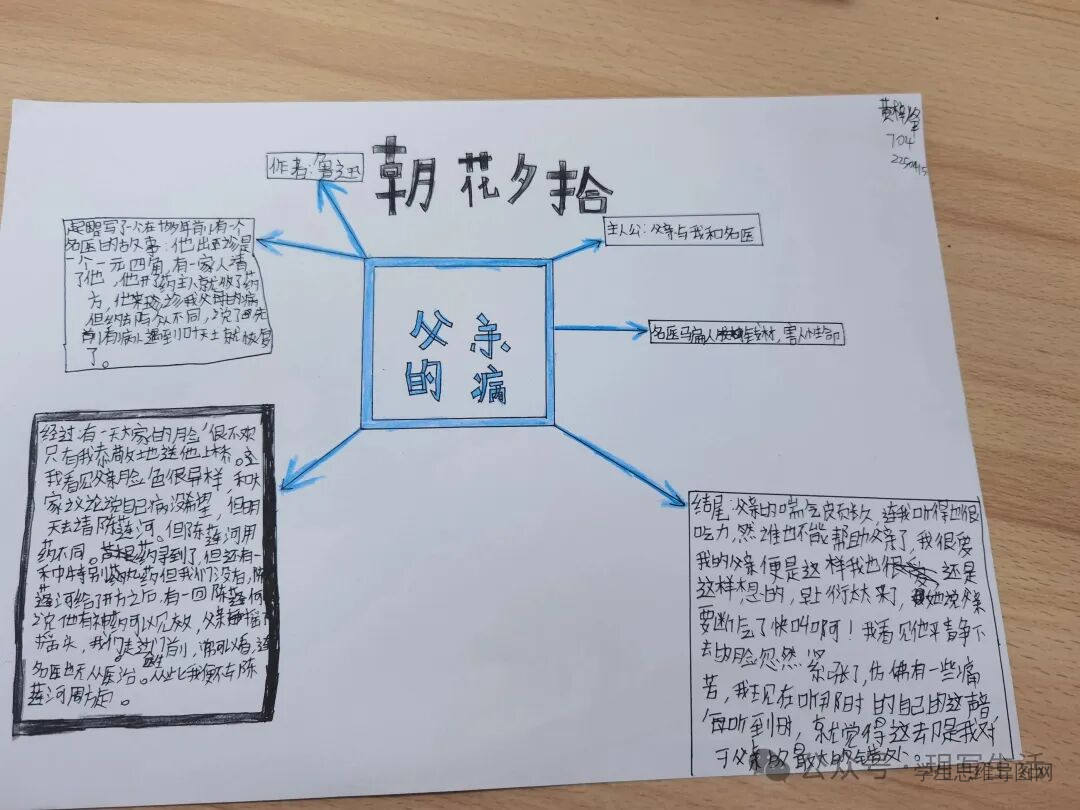 朝花夕拾
704
作者:鲁迅
主人公:父亲与我和名医
起
写了一个在
年前有一个
名医的故事:他出
诊是
一个一元四角,有一家人请
了他,他开了药主人就
了药
方,他来
诊我父亲的病
但药
与众不同,
说了
先
前有病人遇到叶天士就恢复
了。
父亲
的病
名医
病人
害人性命
经过:有一天大家的脸
很不欢
只有我恭敬地送他上轿。
我看见父亲脸色很异样,和大
家议论说自己病没希望,但明
天去请陈莲河。但陈莲河用
药不同。芦根
药寻到了,但还有一
种特别的丸药但我们没有,陈
莲河给了开方之后,有一回陈莲河
说他有种药可以见效,父亲摇
摇头,我们走过门前,
可以看,连
名医也无从医治。从此我便不与陈
莲河周旋。
结尾:父亲的喘气
长久,连我听得也很
吃力,然谁也不能帮助父亲了,我很爱
我的父亲便是这样我也
还是
这样想的,早上衍太太来了,
她说父亲
要断气了快叫啊!我看见他平静下
去的脸忽然紧张了,仿佛有一些痛
苦,我现在听那时的自己的这声音
每听到时,就觉得这却是我对
于父亲的最大的错处。
公众号·
学生思维导图网